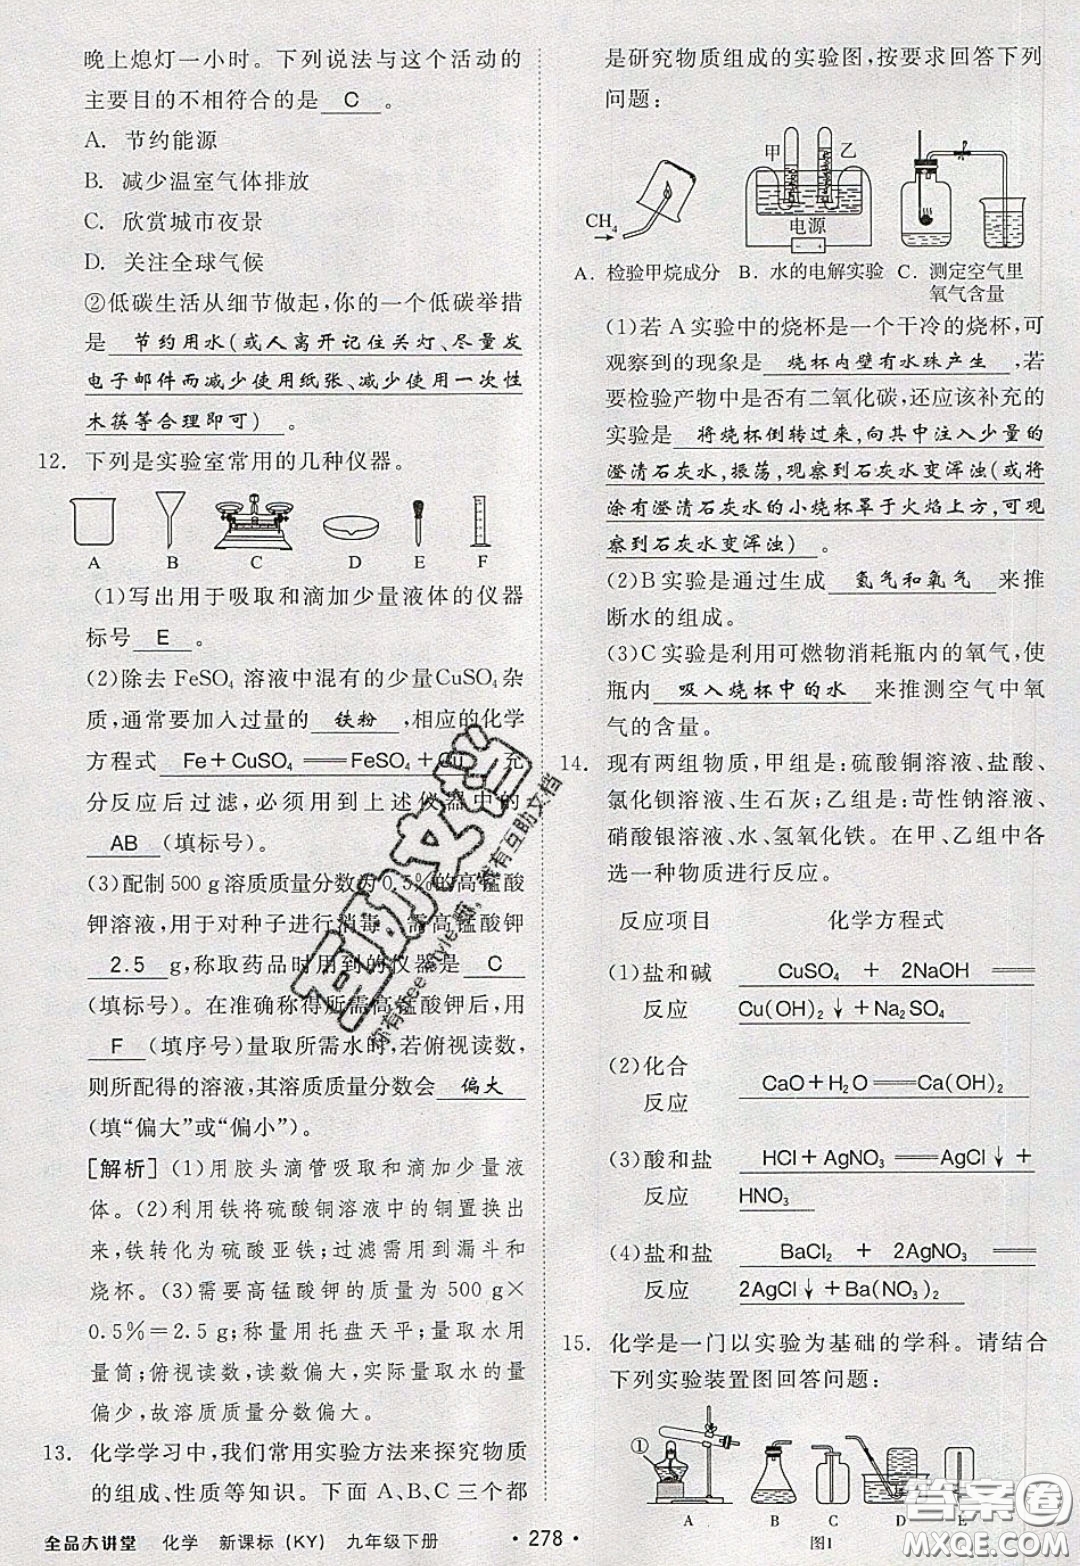 晚上熄灯一小时。下列说法与这个活动的
主要目的不相符合的是 C 。
A. 节约能源
B. 减少温室气体排放
C. 欣赏城市夜景
D. 关注全球气候
②低碳生活从细节做起,你的一个低碳举措
是 节约用水(或人离开记住关灯、尽量发
电子邮件而减少使用纸张、减少使用一次性
木筷等合理即可) 。
12. 下列是实验室常用的几种仪器。
A B C D E F
(1)写出用于吸取和滴加少量液体的仪器
标号 E 。
(2)除去 FeSO₄ 溶液中混有的少量CuSO₄杂
质,通常要加入过量的 铁粉 ,相应的化学
方程式 Fe+CuSO₄══FeSO₄+ 充
分反应后过滤,必须用到上述仪器中的
AB (填标号)。
(3)配制 500 g溶质质量分数为0.5%的高锰酸
钾溶液,用于对种子进行消毒。需高锰酸钾
2.5 g,称取药品时用到的仪器是 C
(填标号)。在准确称得所需高锰酸钾后,用
F (填序号)量取所需水时,若俯视读数,
则所配得的溶液,其溶质质量分数会 偏大
(填“偏大”或“偏小”)。
[解析] (1)用胶头滴管吸取和滴加少量液
体。(2)利用铁将硫酸铜溶液中的铜置换出
来,铁转化为硫酸亚铁;过滤需用到漏斗和
烧杯。(3)需要高锰酸钾的质量为 500 g×
0.5%=2.5 g;称量用托盘天平;量取水用
量筒;俯视读数,读数偏大,量取水的质量
偏少,故溶质质量分数偏大。
13. 化学学习中,我们常用实验方法来探究物质
的组成、性质等知识。下面 A、B、C 三个都
是研究物质组成的实验图,按要求回答下列
问题:
甲 乙
CH₄
电源
A. 检验甲烷成分 B. 水的电解实验 C. 测定空气里
氧气含量
(1)若 A 实验中的烧杯是一个干冷的烧杯,可
观察到的现象是 烧杯内壁有水珠产生 ,若
要检验产物中是否有二氧化碳,还应该补充的
实验是 将烧杯倒转过来,向其中注入少量的
澄清石灰水,振荡,观察到石灰水变浑浊(或将
涂有澄清石灰水的小烧杯罩于火焰上方,可观
察到石灰水变浑浊) 。
(2)B 实验是通过生成 氢气和氧气 来推
断水的组成。
(3)C实验是利用可燃物消耗瓶内的氧气,使
瓶内 吸入烧杯中的水 来推测空气中氧
气的含量。
14. 现有两组物质,甲组是:硫酸铜溶液、盐酸、
氯化钡溶液、生石灰;乙组是:苛性钠溶液、
硝酸银溶液、水、氢氧化铁。在甲、乙组中各
选一种物质进行反应。
反应项目 化学方程式
(1)盐和碱 CuSO₄ + 2NaOH ══
反应 Cu(OH)₂↓+Na₂SO₄
(2)化合
反应 CaO+H₂O══Ca(OH)₂
(3)酸和盐 HCl+AgNO₃══AgCl↓+
反应 HNO₃
(4)盐和盐 BaCl₂ + 2AgNO₃ ══
反应 2AgCl↓+Ba(NO₃)₂
15. 化学是一门以实验为基础的学科。请结合
下列实验装置图回答问题:
①
A B C D E
图1
全品大讲堂 化学 新课标(KY) 九年级下册 · 278 ·
答案圈
MXQE.COM